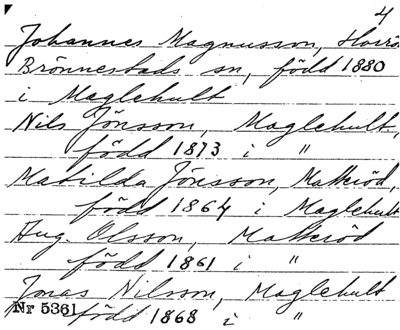 4
Johannes Magnusson, Horrö
Brönnestads sn, född 1880
i Maglehult
Nils Jönsson, Maglehult,
född 1873 i "
Matilda Jönsson, Matteröd,
född 1864 i Maglehult
Aug. Olsson, Matteröd
född 1861 i "
Jonas Nilsson, Maglehult
Nr 5361 född 1868 i "